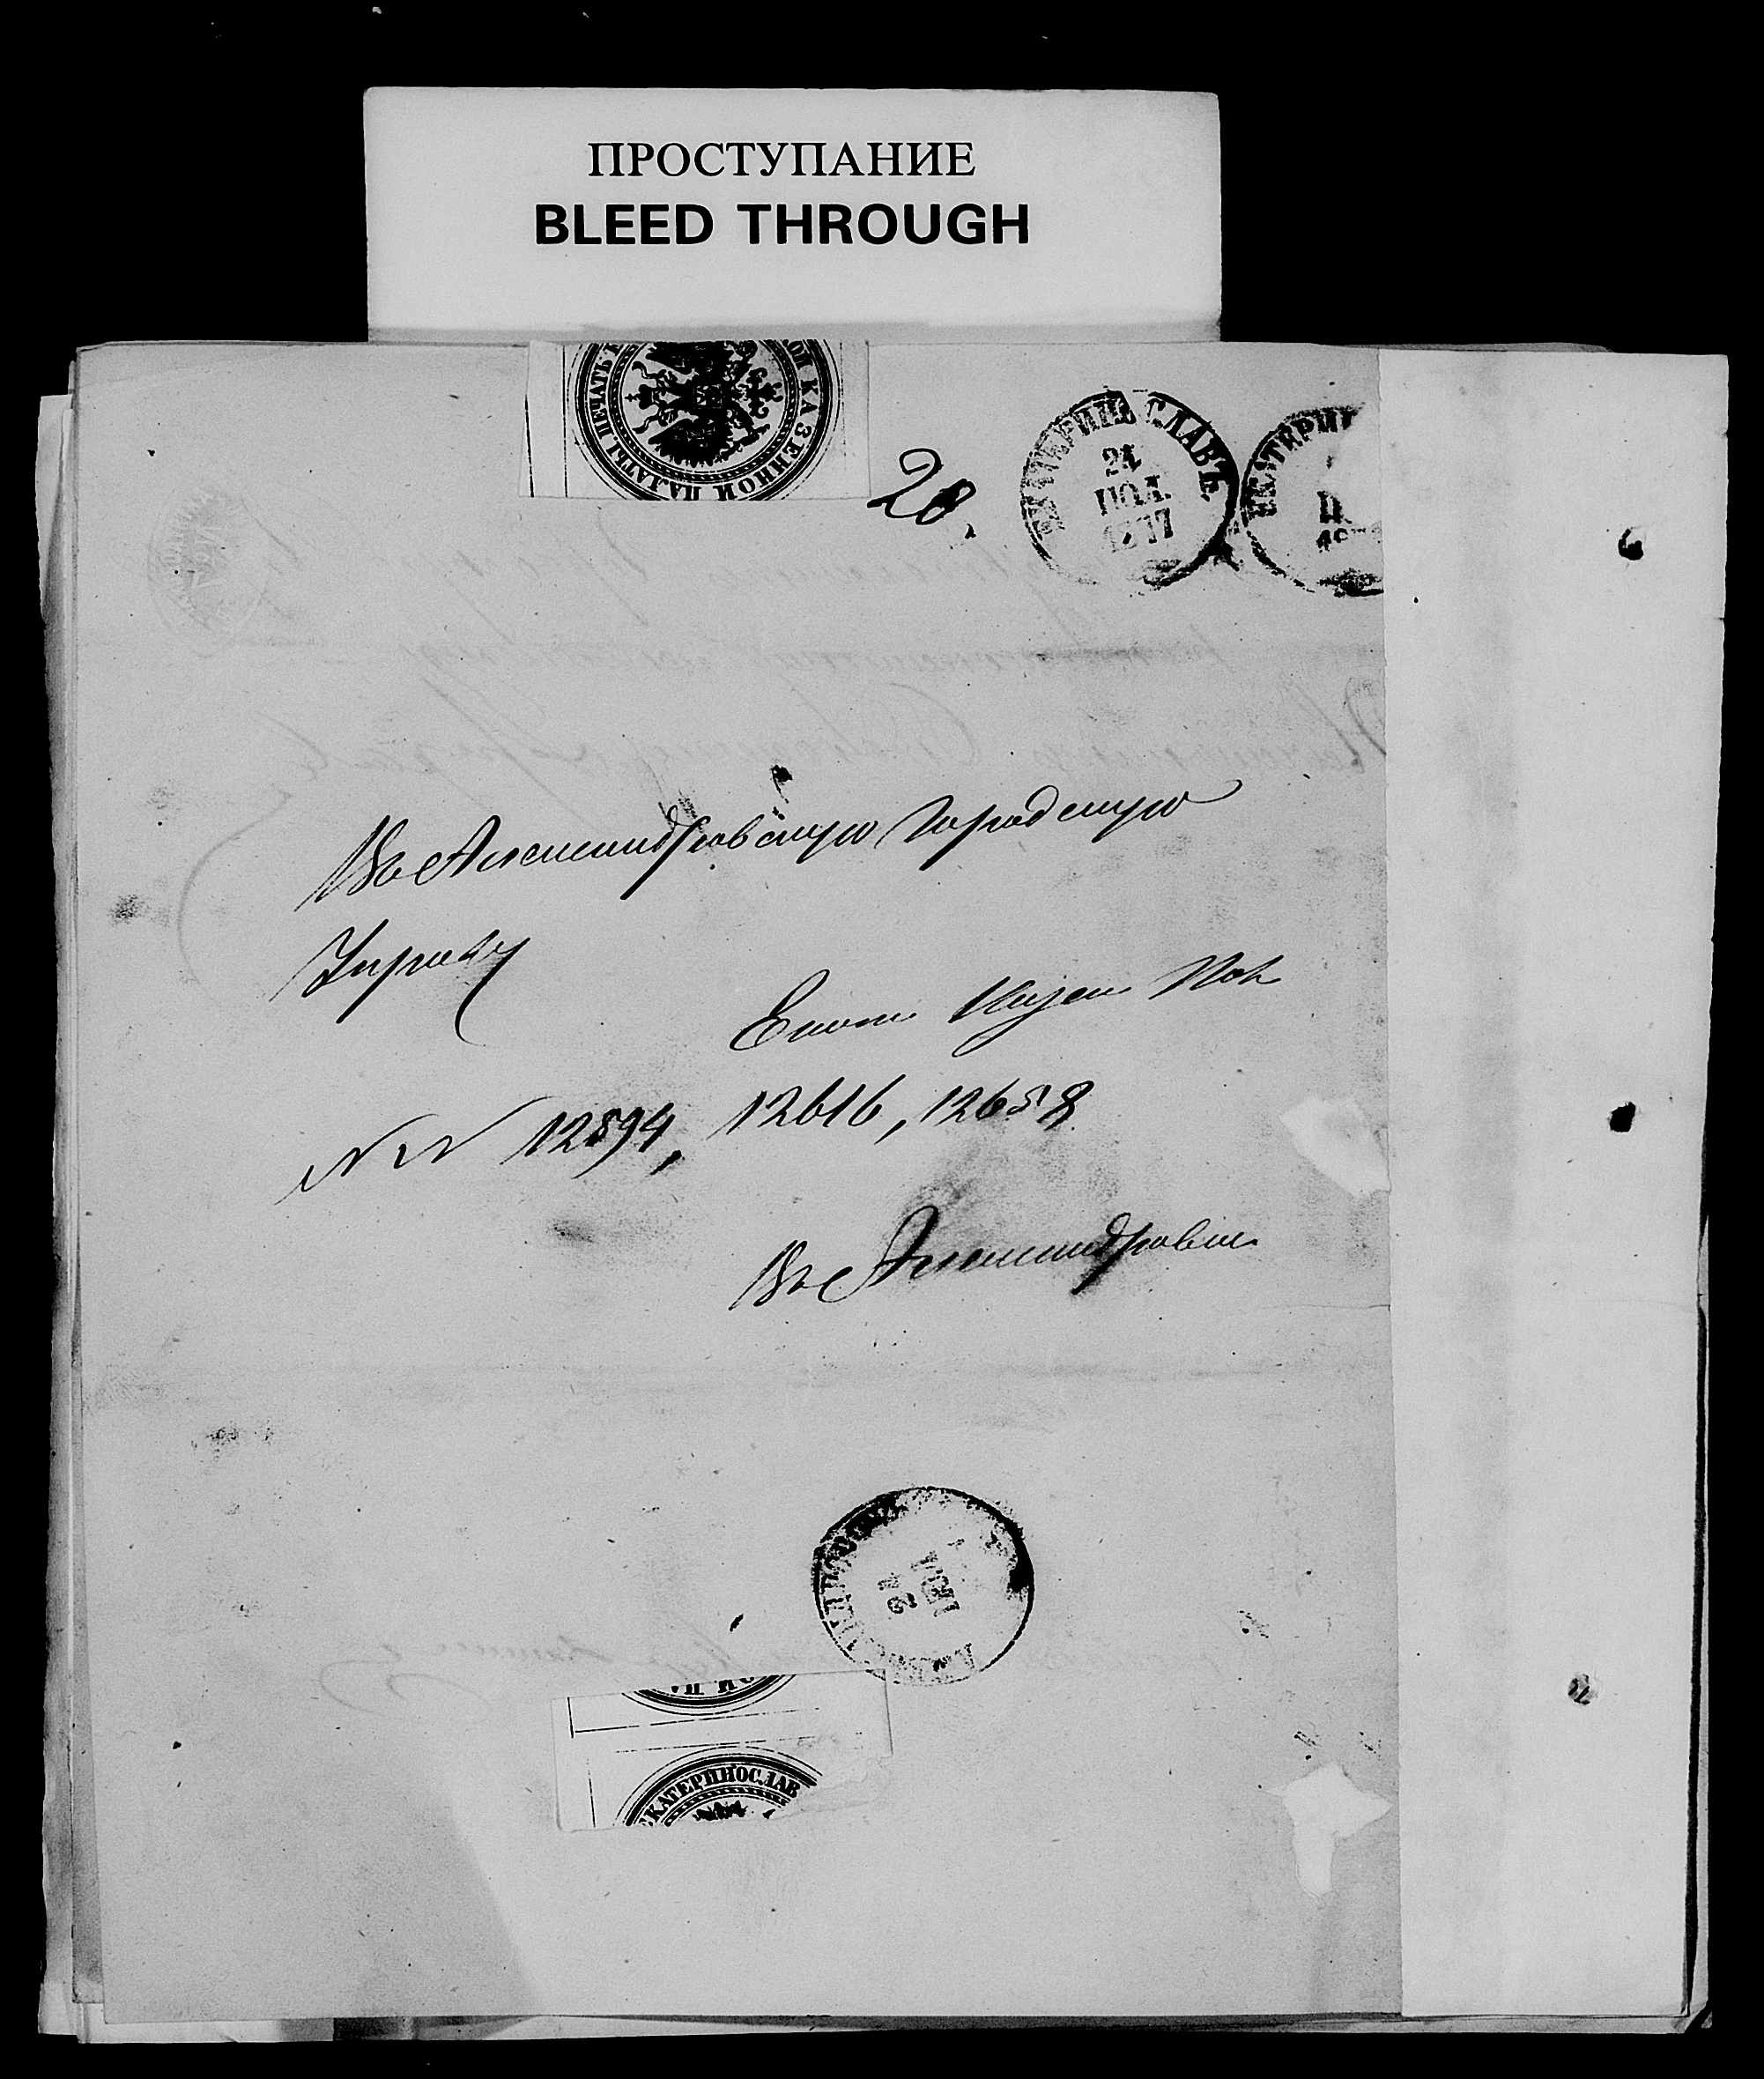 ПРОСТУПАНИЕ
BLEED THROUGH
ПЕЧАТЬ
ОЙ КАЗЕННОЙ ПАЛАТЫ
28.
ЕКАТЕРИНОСЛАВЪ.
24
ІЮЛ.
1877
ЕКАТЕРИ
Въ Александровскую Городскую
Управу
Екат Казен Пол
NN 12594, 12616, 12658
Въ Александровскъ
24
ІЮЛ
ОЙ ПА
ЕКАТЕРИНОСЛАВ